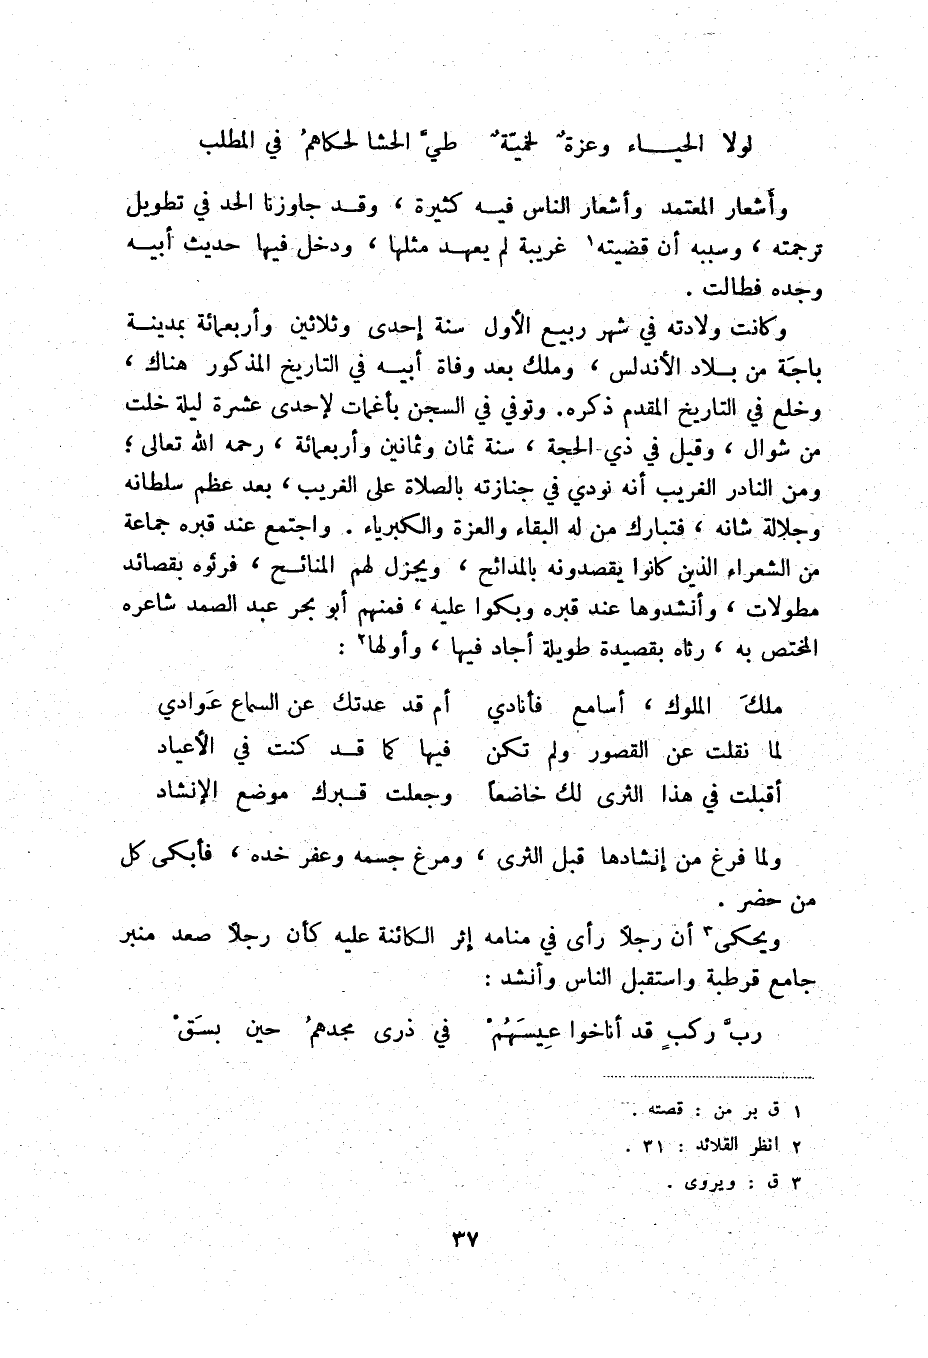 لولا الحيـــاء وعزة ٌ لخميّة ٌ طيَّ الحشا لحكاهمُ في المطلب
وأشعار المعتمد وأشعار الناس فيـه كثيرة ، وقـد جاوزنا الحد في تطويل
ترجمته ، وسببه أن قضيته١ غريبة لم يعهـد مثلها ، ودخل فيها حديث أبيـه
وجده فطالت .
وكانت ولادته في شهر ربيع الأول سنة إحدى وثلاثين وأربعمائة بمدينـة
باجَة من بـلاد الأندلس ، وملك بعد وفاة أبيـه في التاريخ المذكور هناك ،
وخلع في التاريخ المقدم ذكره. وتوفي في السجن بأغمات لإحدى عشرة ليلة خلت
من شوال ، وقيل في ذي الحجة ، سنة ثمان وثمانين وأربعمائة ، رحمه الله تعالى ؛
ومن النادر الغريب أنه نودي في جنازته بالصلاة على الغريب ، بعد عظم سلطانه
وجلالة شانه ، فتبارك من له البقاء والعزة والكبرياء . واجتمع عند قبره جماعة
من الشعراء الذين كانوا يقصدونه بالمدائح ، ويجزل لهم المنائـح ، فرثوه بقصائد
مطولات ، وأنشدوها عند قبره وبكوا عليه ، فمنهم أبو بحر عبد الصمد شاعره
المختص به ، رثاه بقصيدة طويلة أجاد فيها ، وأولها٢ :
ملكَ الملوك ، أسامع فأنادي أم قد عدتك عن السماع عَوادي
لما نقلت عن القصور ولم تكن فيها كما قـد كنت في الأعياد
أقبلت في هذا الثرى لك خاضعاً وجعلت قـبرك موضع الإنشاد
ولما فرغ من إنشادها قبل الثرى ، ومرغ جسمه وعفر خده ، فأبكى كل
من حضر .
ويحكى٣ أن رجلاً رأى في منامه إثر الكائنة عليه كأن رجلاً صعد منبر
جامع قرطبة واستقبل الناس وأنشد :
ربَّ ركبٍ قد أناخوا عِيسَهُمْ في ذرى مجدهمُ حين بسَقْ
١ ق بر من : قصته .
٢ انظر القلائد : ٣١ .
٣ ق : ويروى .
٣٧